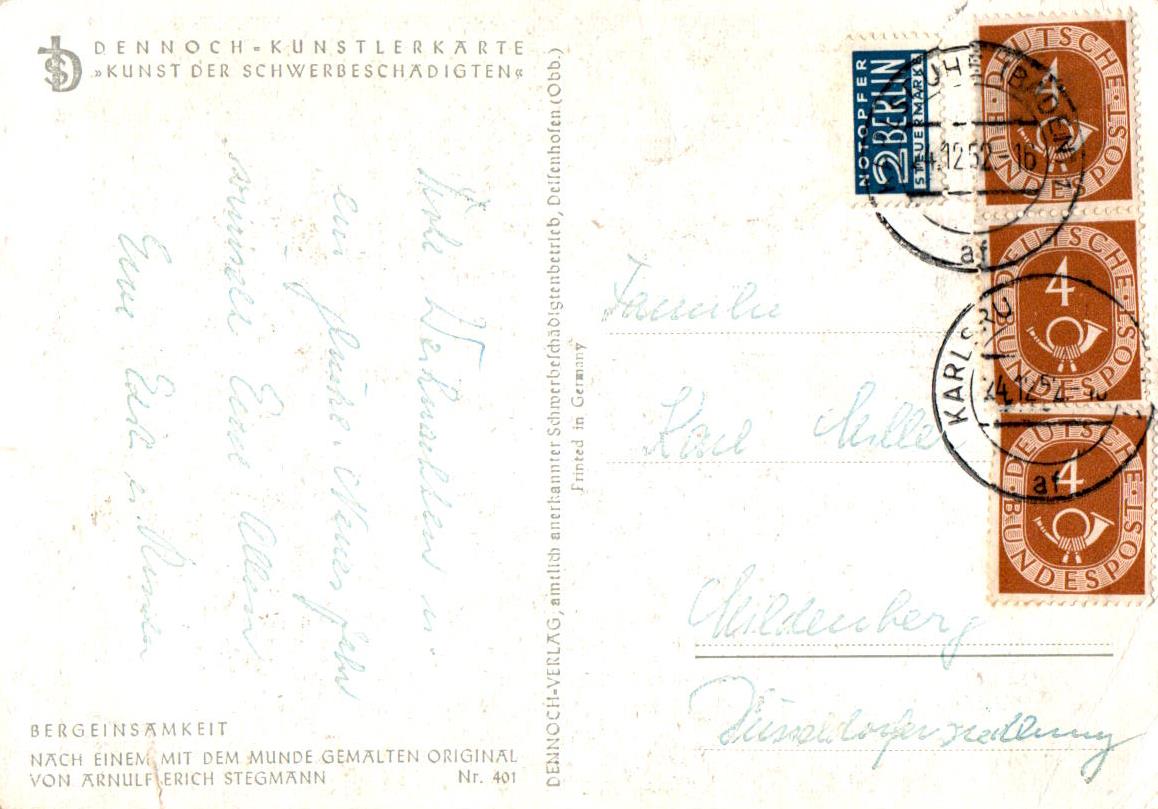 DENNOCH-KUNSTLERKARTE
»KUNST DER SCHWERBESCHÄDIGTEN«
Weihnachten u.
ein Neues Jahr
wünscht Euch Allen
Eure
BERGEINSAMKEIT
NACH EINEM MIT DEM MUNDE GEMALTEN ORIGINAL
VON ARNULF ERICH STEGMANN Nr. 401
DENNOCH-VERLAG, amtlich anerkannter Schwerbeschädigtenbetrieb, Deisenhofen (Obb.)
Printed in Germany
NOTOPFER
2 BERLIN
STEUERMARKE
DEUTSCHE BUNDESPOST
4
DEUTSCHE BUNDESPOST
4
DEUTSCHE BUNDESPOST
4
UHE (BADEN)
24.12.52-16
af
KARLSRU
24.12.52-16
af
Familie
Karl Miller
Mildenberg
Düsseldorfersiedlung